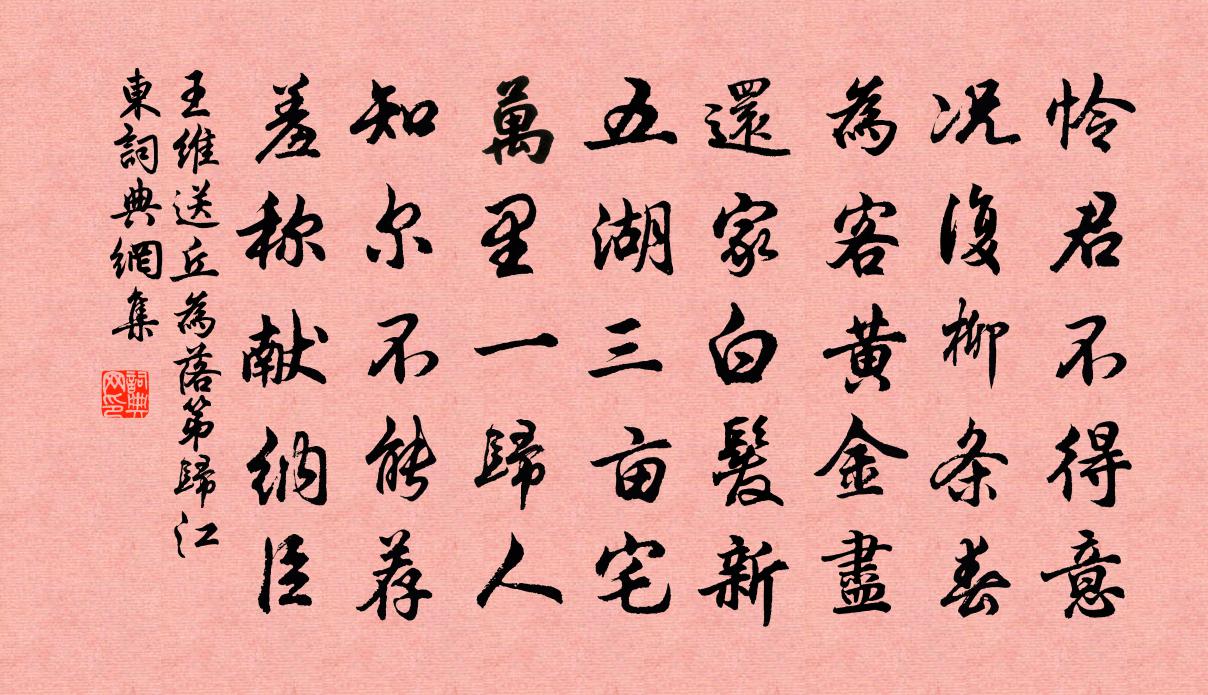 怜君不得意
况復柳条春
為客黄金盡
還家白髮新
五湖三亩宅
萬里一歸人
知尔不能荐
羞称献納臣
王維送丘為落第歸江
東詞典網集
詞典
网印